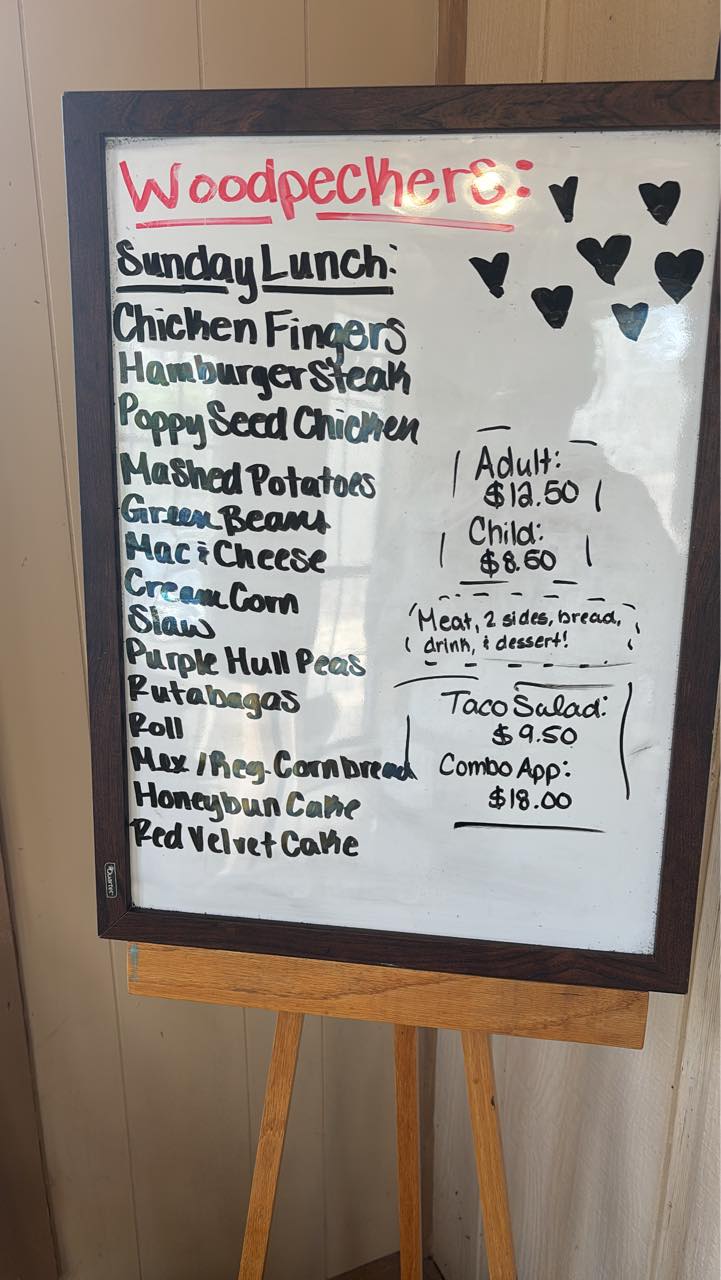 Woodpeckers:
Sunday Lunch:
Chicken Fingers
Hamburger Steak
Poppy Seed Chicken
Mashed Potatoes
Green Beans
Mac & Cheese
Cream Corn
Slaw
Purple Hull Peas
Rutabagas
Roll
Mex/Reg. Cornbread
Honeybun Cake
Red Velvet Cake
Adult:
$12.50
Child:
$8.50
Meat, 2 sides, bread,
drink, & dessert!
Taco Salad:
$9.50
Combo App:
$18.00
Quartet